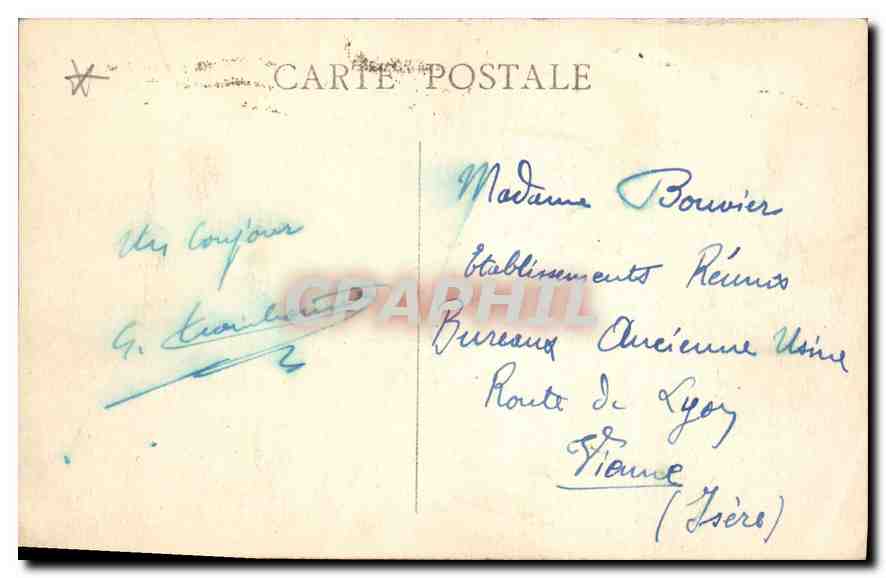 CARTE POSTALE
Un bonjour
G.
Madame Bouvier
Etablissements Réunis
Bureaux Ancienne Usine
Route de Lyon
Vienne
(Isère)
CPAPHIL